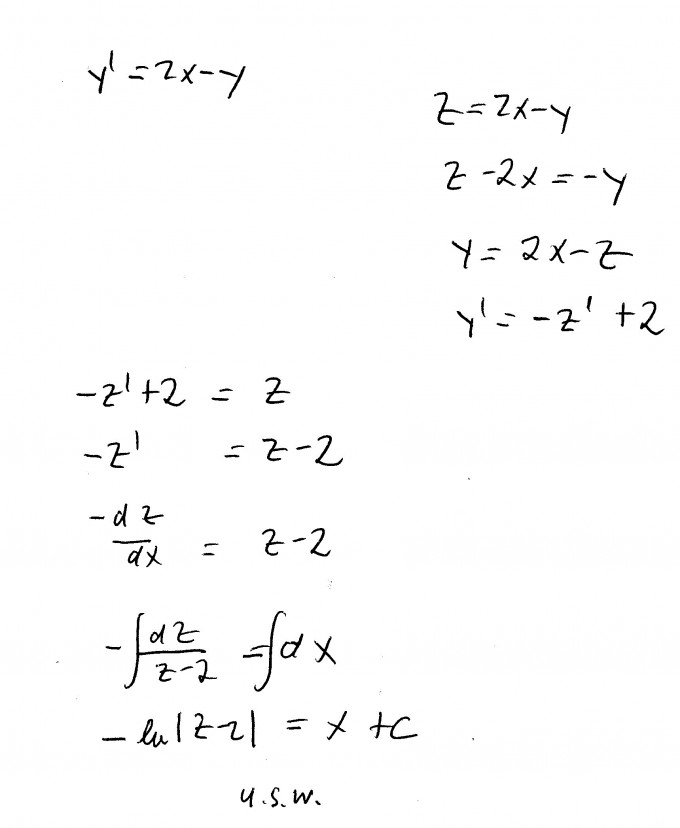 y' = 2x-y
z = 2x-y
z -2x = -y
y = 2x-z
y' = -z' +2
-z'+2 = z
-z' = z-2
-dz/dx = z-2
-∫dz/z-2 = ∫dx
-ln|z-2| = x +c
u.s.w.